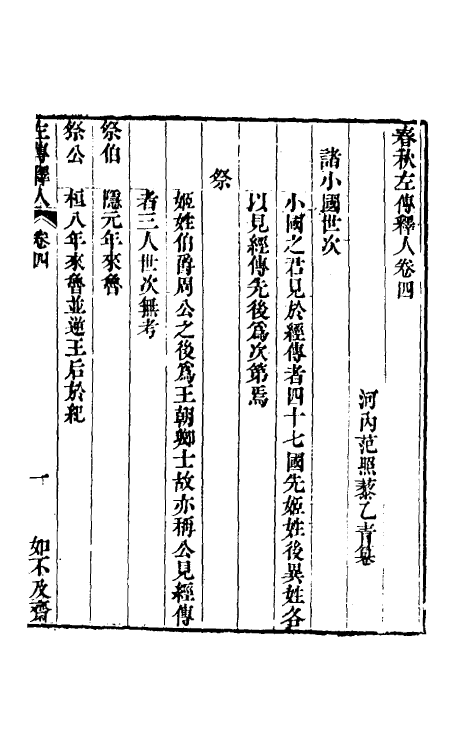 春秋左傳釋人卷四
河內范照藜乙青纂
諸小國世次
小國之君見於經傳者四十七國先姬姓後異姓各
以見經傳先後爲次第焉
祭
姬姓伯爵周公之後爲王朝卿士故亦稱公見經傳
者三人世次無考
祭伯 隱元年來魯
祭公 桓八年來魯並逆王后於紀
左傳釋人 卷四 一 如不及齋